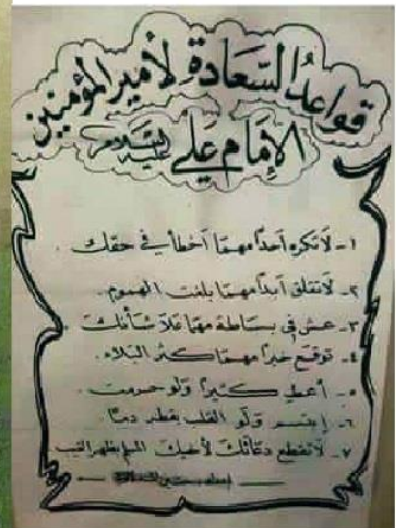 قواعد السّعادة لأمير المؤمنين
الإمام علي عليه السلام
١- لا تكره أحداً مهما أخطأ في حقك .
٢- لا تقلق أبداً مهما بلغت الهموم .
٣- عش في بساطة مهما علا شأنك .
٤- توقع خيراً مهما كثر البلاء .
٥- أعطي كثيراً ولو حرمت .
٦- إبتسم ولو القلب يقطر دماً .
٧- لا تقطع دعائك لأخيك المسلم بظهر الغيب